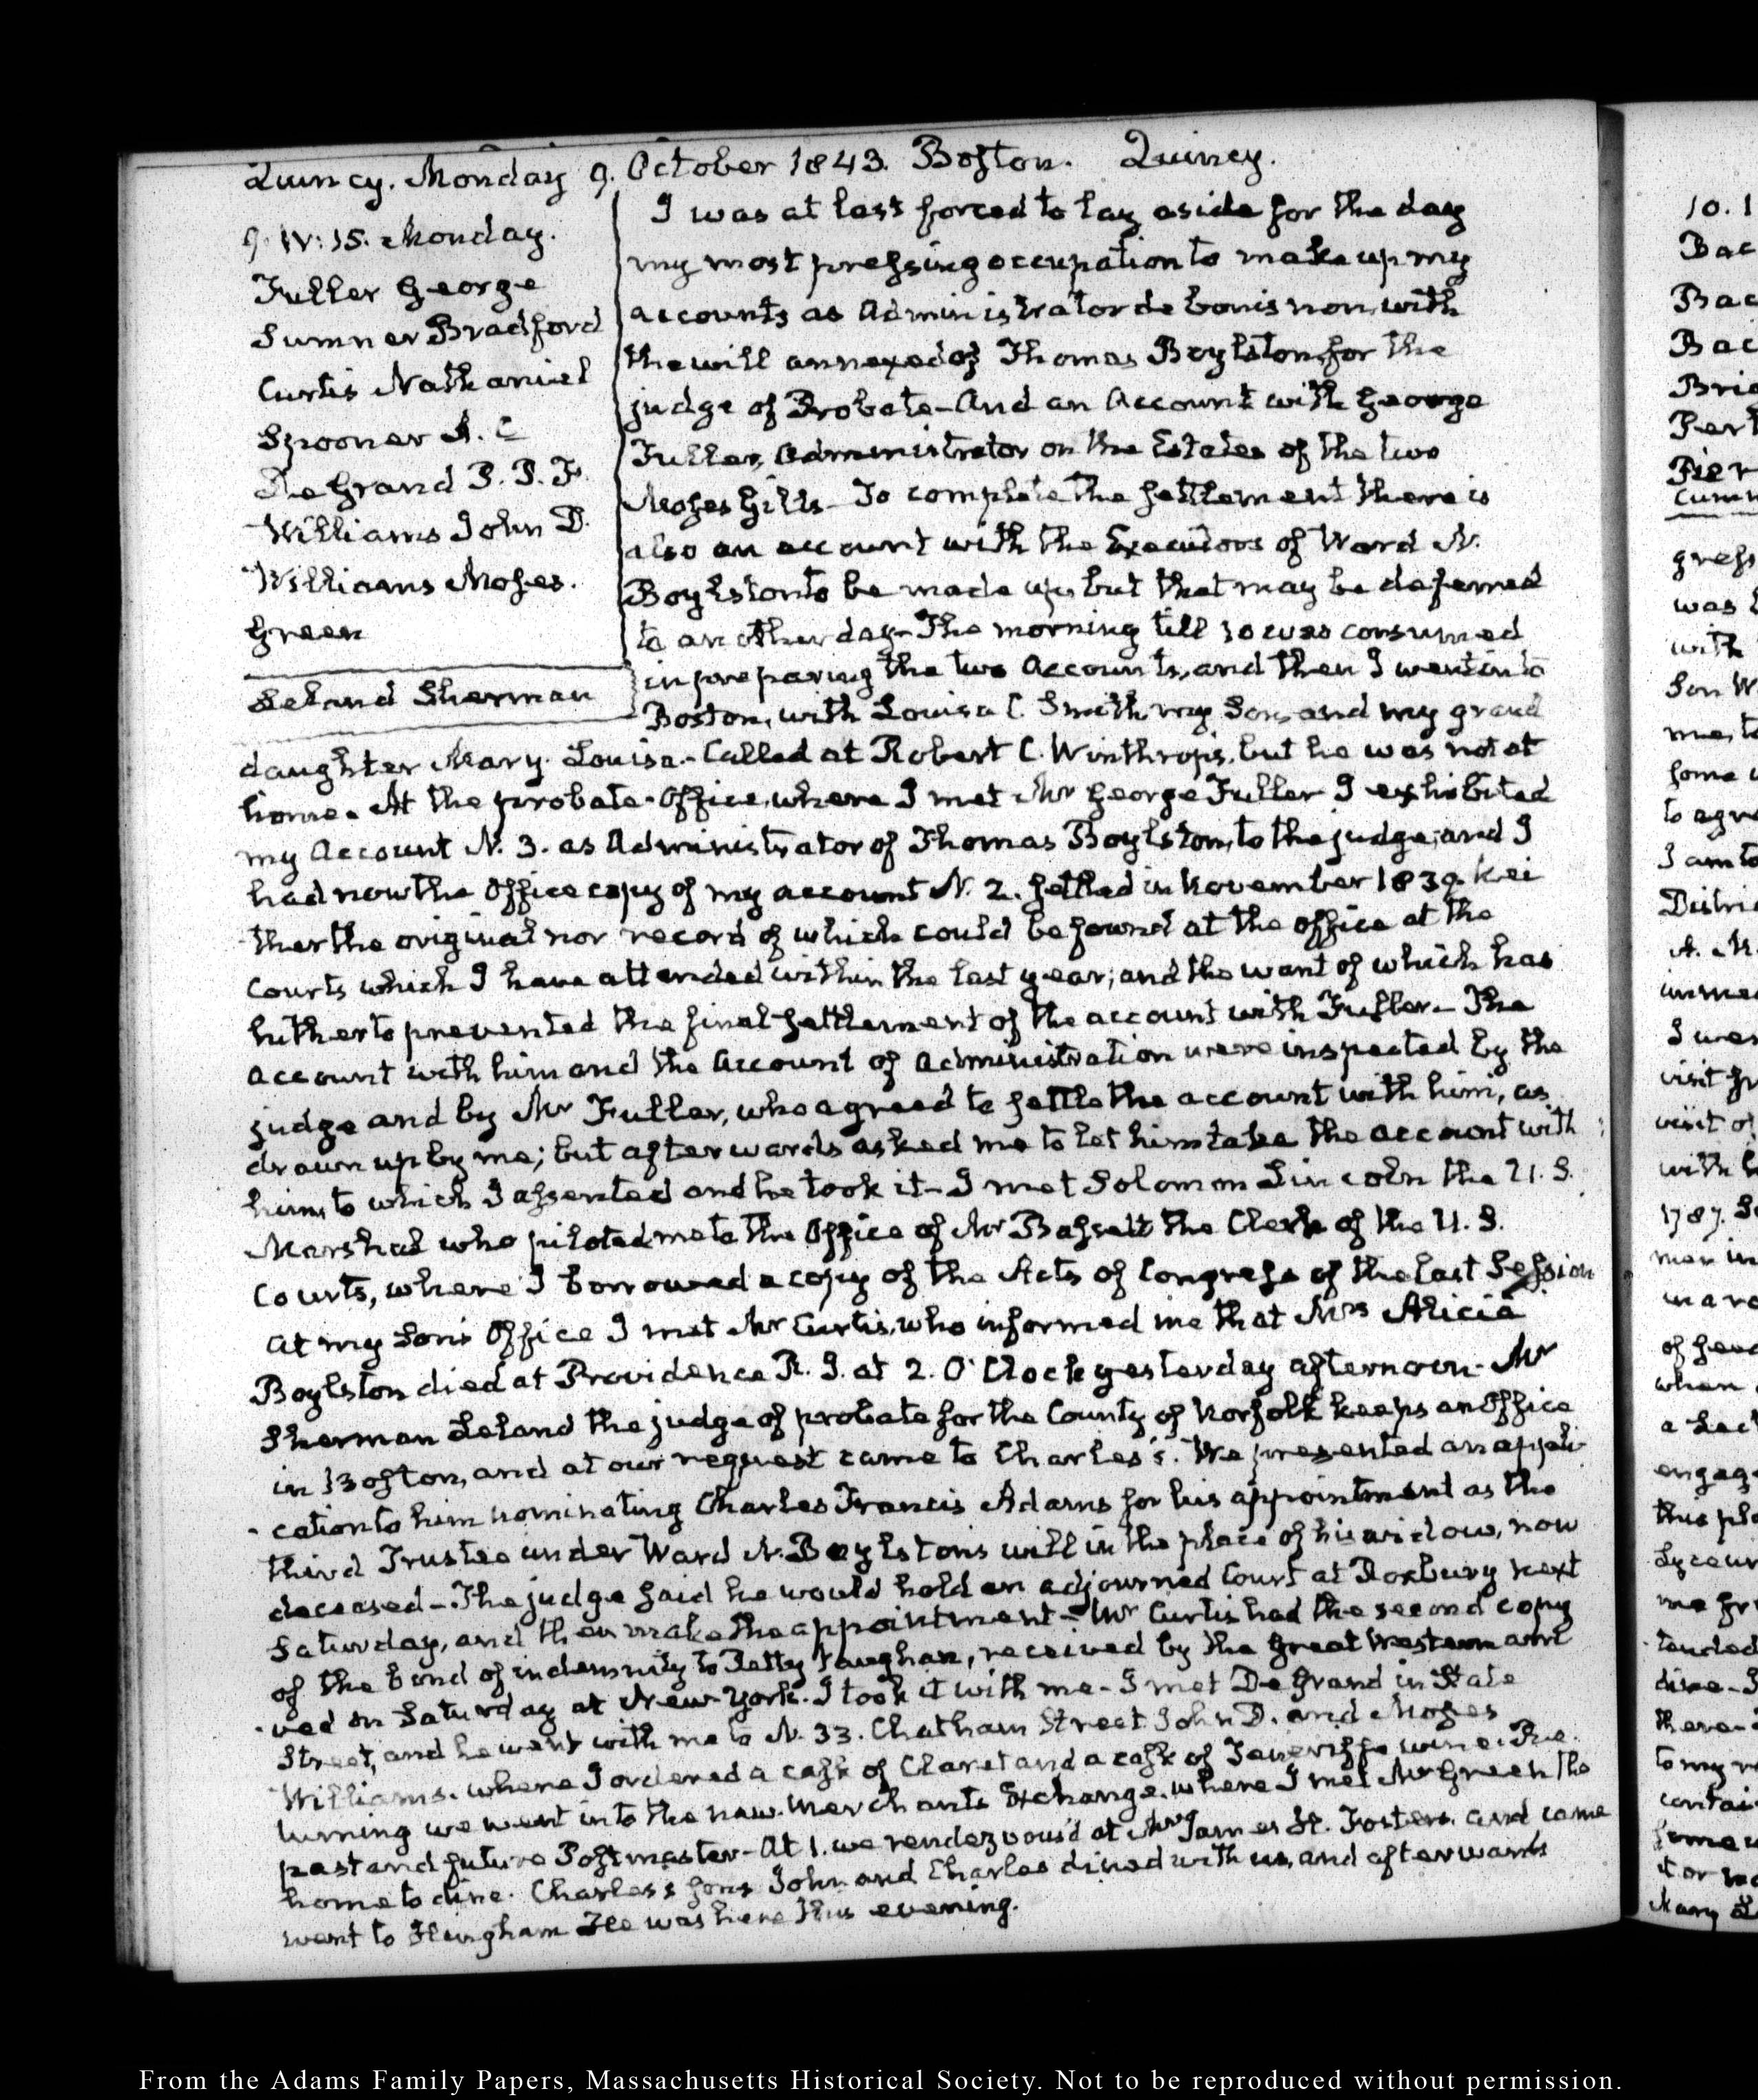 Quincy. Monday 9. October 1843. Boston. Quincy.
9. IV:15. Monday.
Fuller George
Sumner Bradford
Curtis Nathaniel
Spooner A. C
De Grand P. P. F.
Williams John D.
Williams Moses.
Green
Leland Sherman
I was at last forced to lay aside for the day
my most pressing occupation to make up my
accounts as Administrator de bonis non, with
the will annexed of Thomas Boylston, for the
judge of Probate—And an Account with George
Fuller, Administrator on the Estates of the two
Moses Gills—To complete the settlement there is
also an account with the Executors of Ward N.
Boylston to be made up, but that may be deferred
to another day—The morning till 10 was consumed
in preparing the two Accounts, and then I went in to
Boston, with Louisa C. Smith, my Son, and my grand
daughter Mary Louisa.—Called at Robert C. Winthrop's, but he was not at
home. At the probate-Office, where I met Mr George Fuller I exhibited
my Account N. 3. as Administrator of Thomas Boylston, to the judge; and I
had now the Office copy of my account N. 2. settled in November 1839. Nei
ther the original nor record of which could be found at the office at the
Courts which I have attended within the last year; and the want of which has
hitherto prevented the final settlement of the account with Fuller—The
account with him and the Account of administration were inspected by the
judge and by Mr Fuller, who agreed to settle the account with him, as
drawn up by me; but afterwards asked me to let him take the account with
him, to which I assented and he took it—I met Solomon Lincoln the U.S.
Marshal who piloted me to the Office of Mr Bassett the Clerk of the U.S.
Courts, where I borrowed a copy of the Acts of Congress of the last Session
At my Son's Office I met Mr Curtis, who informed me that Mrs Alicia
Boylston died at Providence R.I. at 2. O'Clock yesterday afternoon—Mr
Sherman Leland the judge of probate for the County of Norfolk keeps an Office
in Boston, and at our request came to Charles's. We presented an appli-
cation to him nominating Charles Francis Adams for his appointment as the
third Trustee under Ward N. Boylston's will in the place of his widow, now
deceased—The judge said he would hold an adjourned Court at Roxbury next
Saturday, and then make the appointment—Mr Curtis had the second copy
of the bond of indemnity to Petty Vaughan, received by the Great Western arri
ved on Saturday at New-York. I took it with me—I met De Grand in State
Street, and he went with me to N. 33. Chatham Street John D. and Moses
Williams. where I ordered a cask of Claret and a cask of Teneriffe wine. Re-
turning we went into the new Merchants Exchange, where I met Mr Green the
past and future Postmaster—At 1. we rendezvous'd at Mrs James H. Foster's. and came
home to dine. Charles's sons John and Charles dined with us, and afterwards
went to Hingham He was here this evening.
10. 1
Bac
Bac
Bac
From the Adams Family Papers, Massachusetts Historical Society. Not to be reproduced without permission.